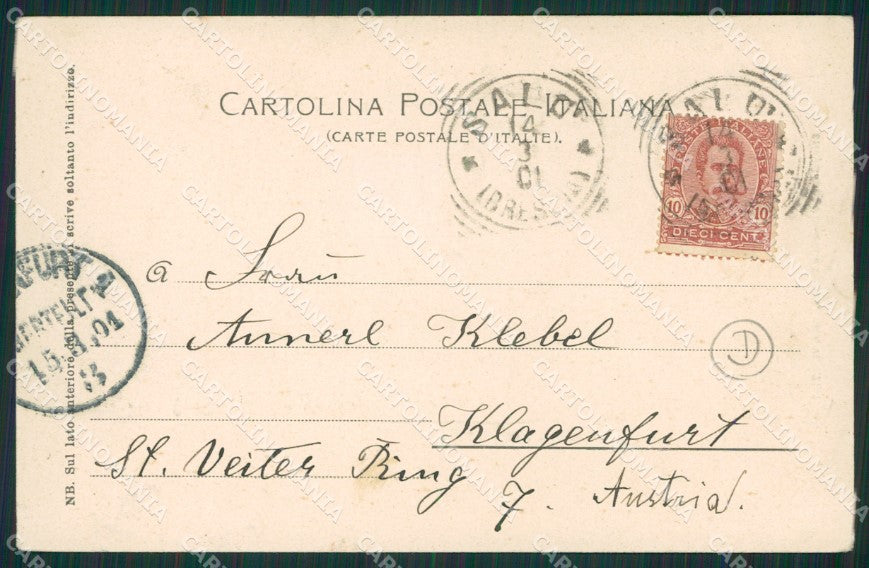 CARTOLINA POSTALE ITALIANA
(CARTE POSTALE D'ITALIE).
SALO'
14
3
01
(BRESCIA)
SALO'
14
3
01
10 10
DIECI CENT.
a Frau
Annerl Klebel
D
Klagenfurt
St. Veiter Ring
7. Austria.
NB. Sul lato anteriore della presente si scrive soltanto l'indirizzo.
CARTOLINOMANIA